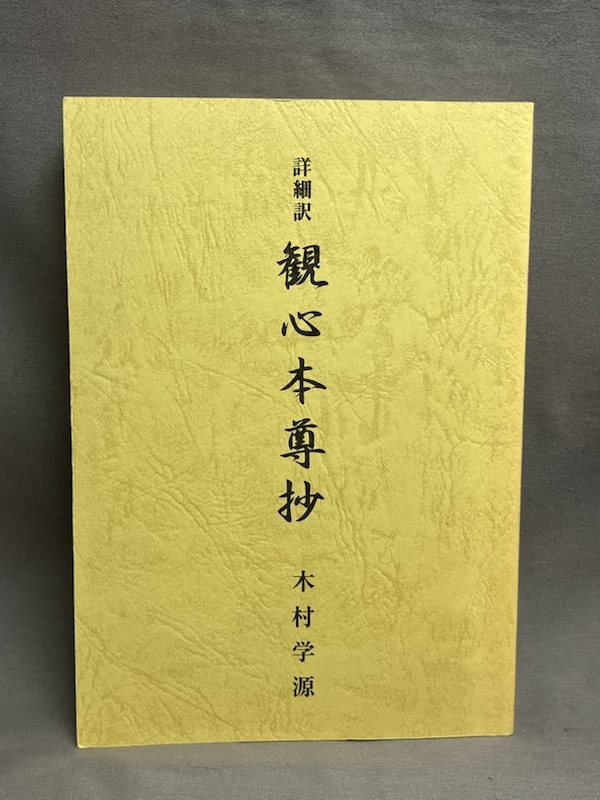 詳細訳
観心本尊抄
木村学源